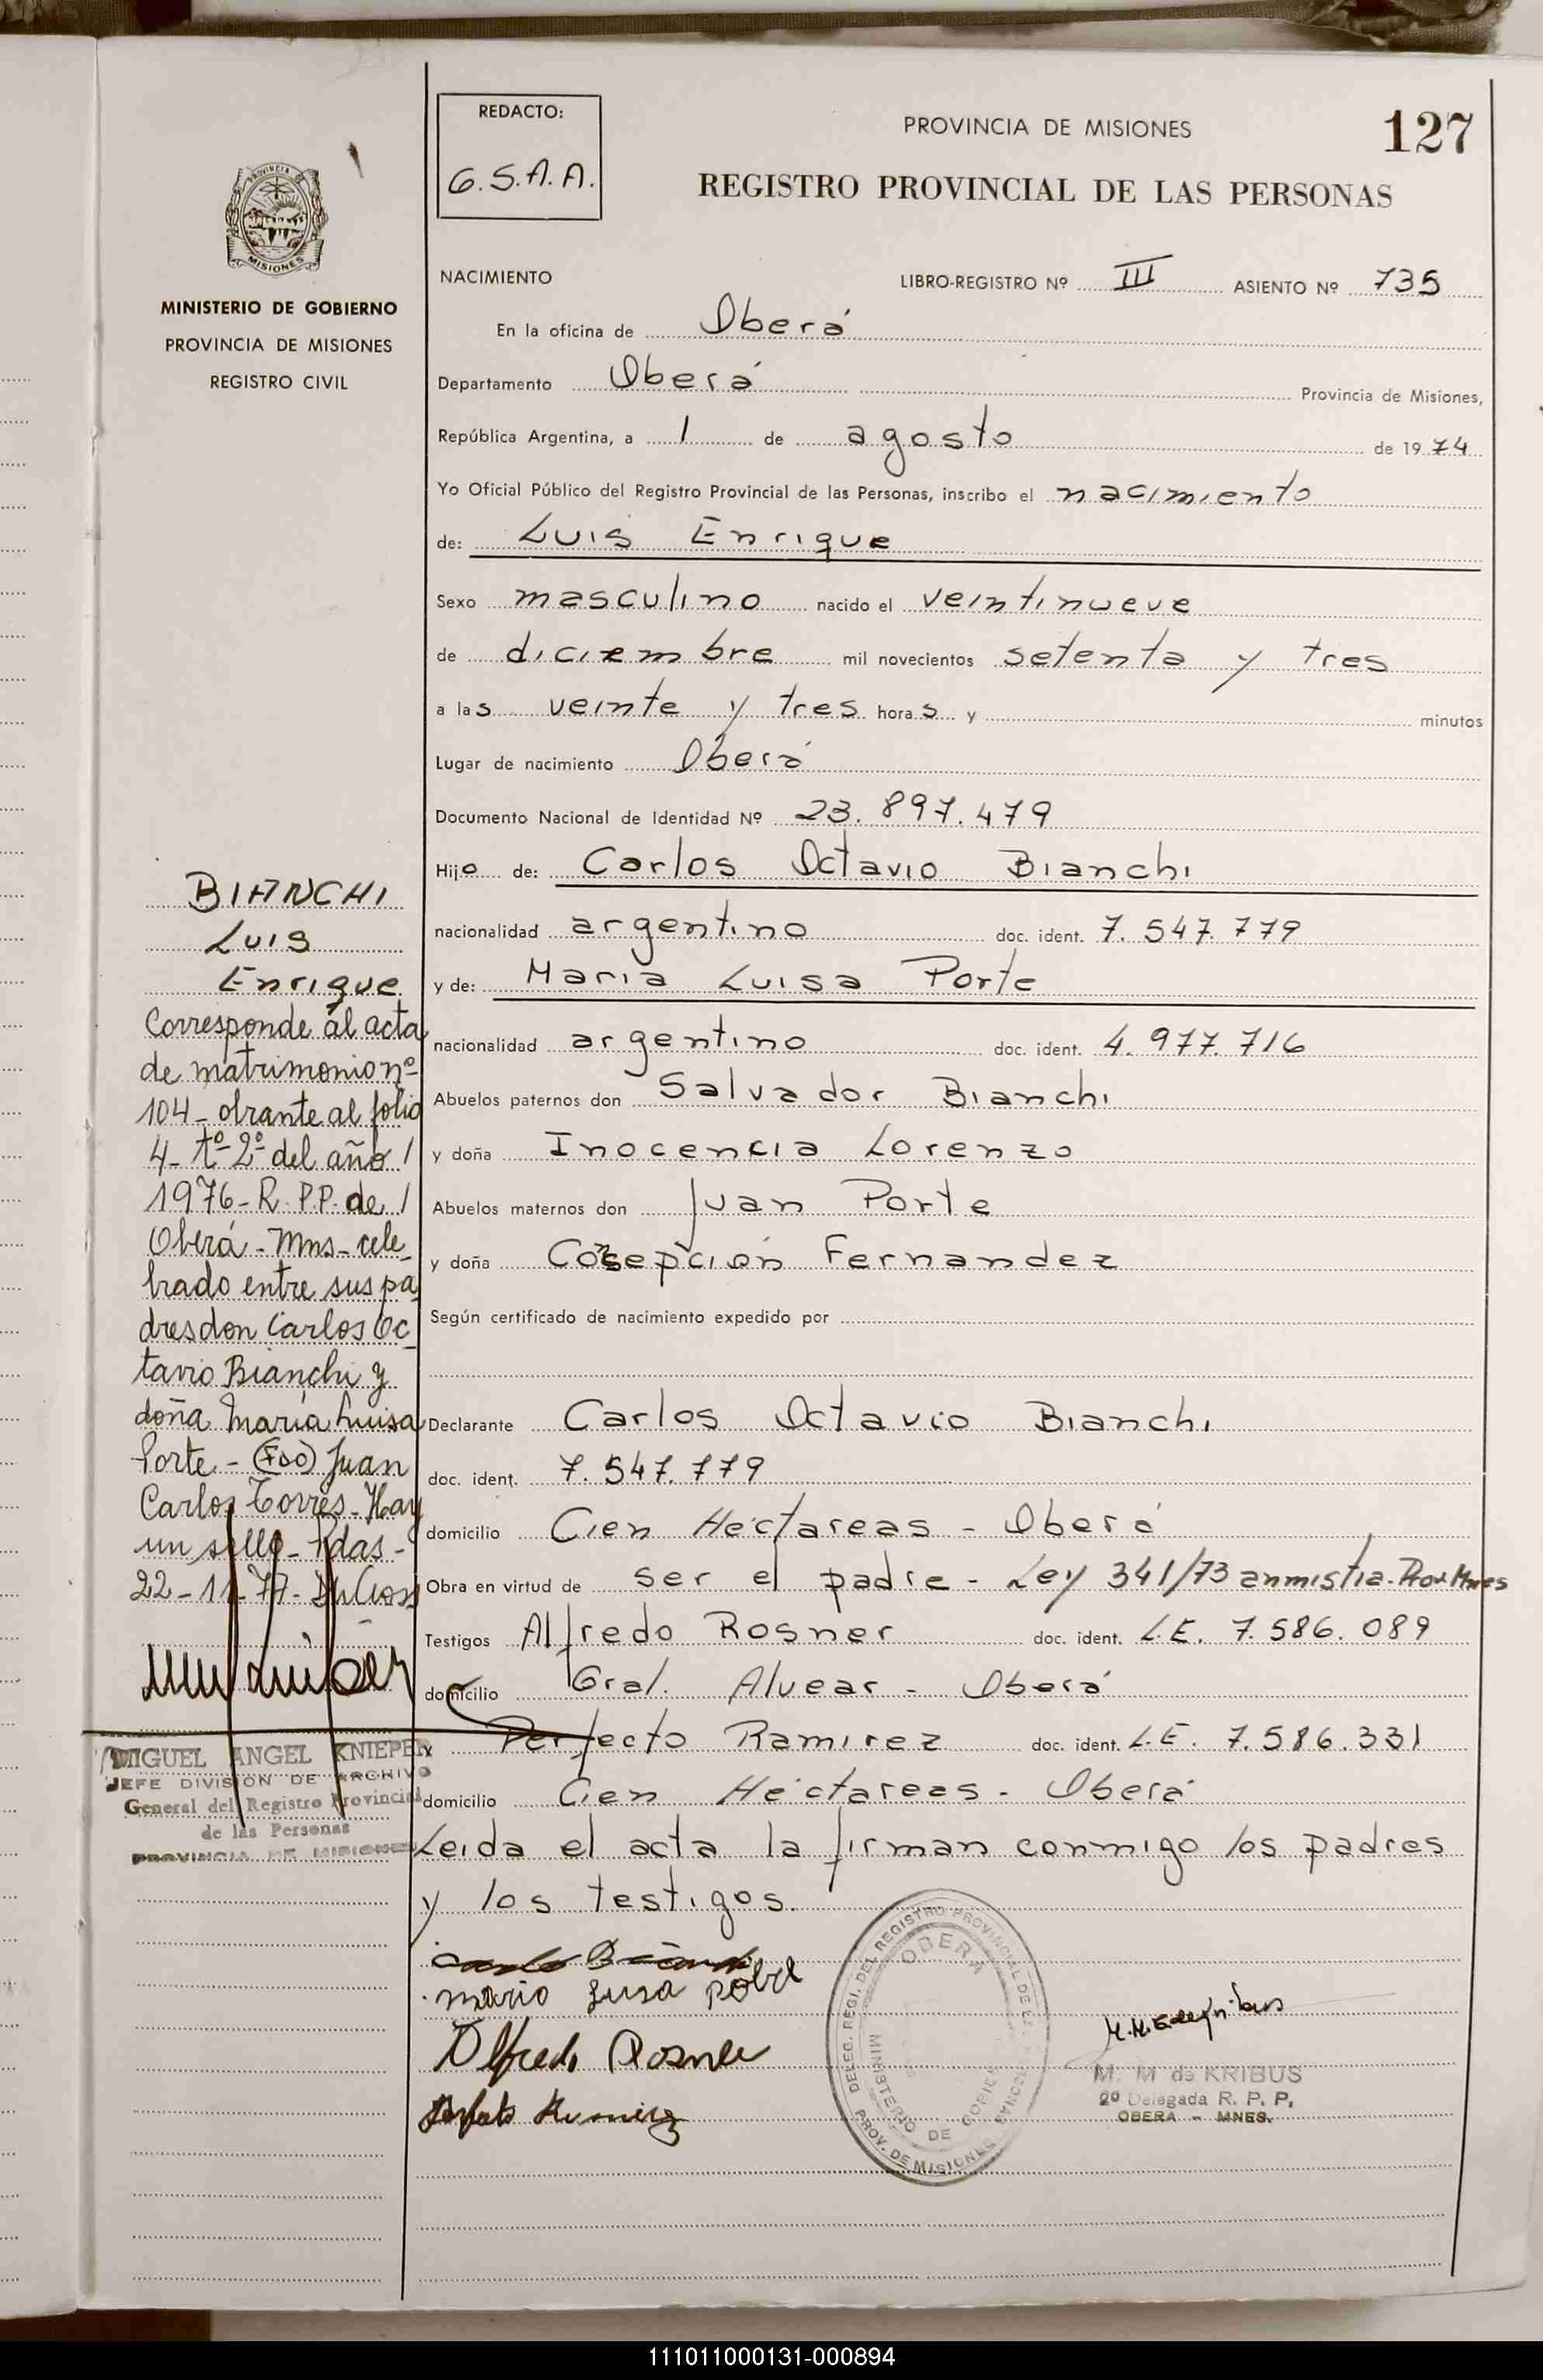 REDACTO:
G.S.A.A.
PROVINCIA DE MISIONES
127
REGISTRO PROVINCIAL DE LAS PERSONAS
PROVINCIA DE
MISIONES
MINISTERIO DE GOBIERNO
PROVINCIA DE MISIONES
REGISTRO CIVIL
NACIMIENTO LIBRO-REGISTRO Nº III ASIENTO Nº 735
En la oficina de Oberá
Departamento Oberá Provincia de Misiones,
República Argentina, a 1 de agosto de 1974
Yo Oficial Público del Registro Provincial de las Personas, inscribo el nacimiento
de: Luis Enrique
Sexo masculino nacido el veintinueve
de diciembre mil novecientos setenta y tres
a las veinte y tres horas y minutos
Lugar de nacimiento Oberá
Documento Nacional de Identidad Nº 23.897.479
Hijo de: Carlos Octavio Bianchi
nacionalidad argentino doc. ident. 7.547.779
y de: Maria Luisa Porte
nacionalidad argentino doc. ident. 4.977.716
Abuelos paternos don Salvador Bianchi
y doña Inocencia Lorenzo
Abuelos maternos don Juan Porte
y doña Fernandez
Según certificado de nacimiento expedido por
Declarante Carlos Octavio Bianchi
doc. ident. 7.547.779
domicilio Cien Héctareas - Oberá
Obra en virtud de ser el padre - Ley 341/73 anmistia. Prov. Mnes
Testigos Alfredo Rosner doc. ident. L.E. 7.586.089
domicilio Gral. Alvear - Oberá
y Perfecto Ramirez doc. ident. L.E. 7.586.331
domicilio Cien Héctareas - Oberá
Leida el acta la firman conmigo los padres
y los testigos.
BIANCHI
Luis
Enrique
Corresponde al acta
de matrimonio nº
104 - obrante al folio
4 - tº 2º del año /
1976 - R.P.P. de /
Oberá - Mns - cele-
brado entre sus pa
dres don Carlos Oc
tavio Bianchi y
doña María Luisa
Porte - (Fdo) Juan
Carlos Torres - Hay
un sello - Pdas -
22-11-77-
MIGUEL ANGEL KNIEPER
JEFE DIVISION DE ARCHIVO
General del Registro Provincial
de las Personas
PROVINCIA DE MISIONES
Alfredo Rosner
DELEG. REGI. DEL REGISTRO PROVINCIAL DE LAS PERSONAS
OBERA
MINISTERIO DE GOBIERNO
PROV. DE MISIONES
M. M de KRIBUS
2º Delegada R. P. P.
OBERA - MNES.
111011000131-000894